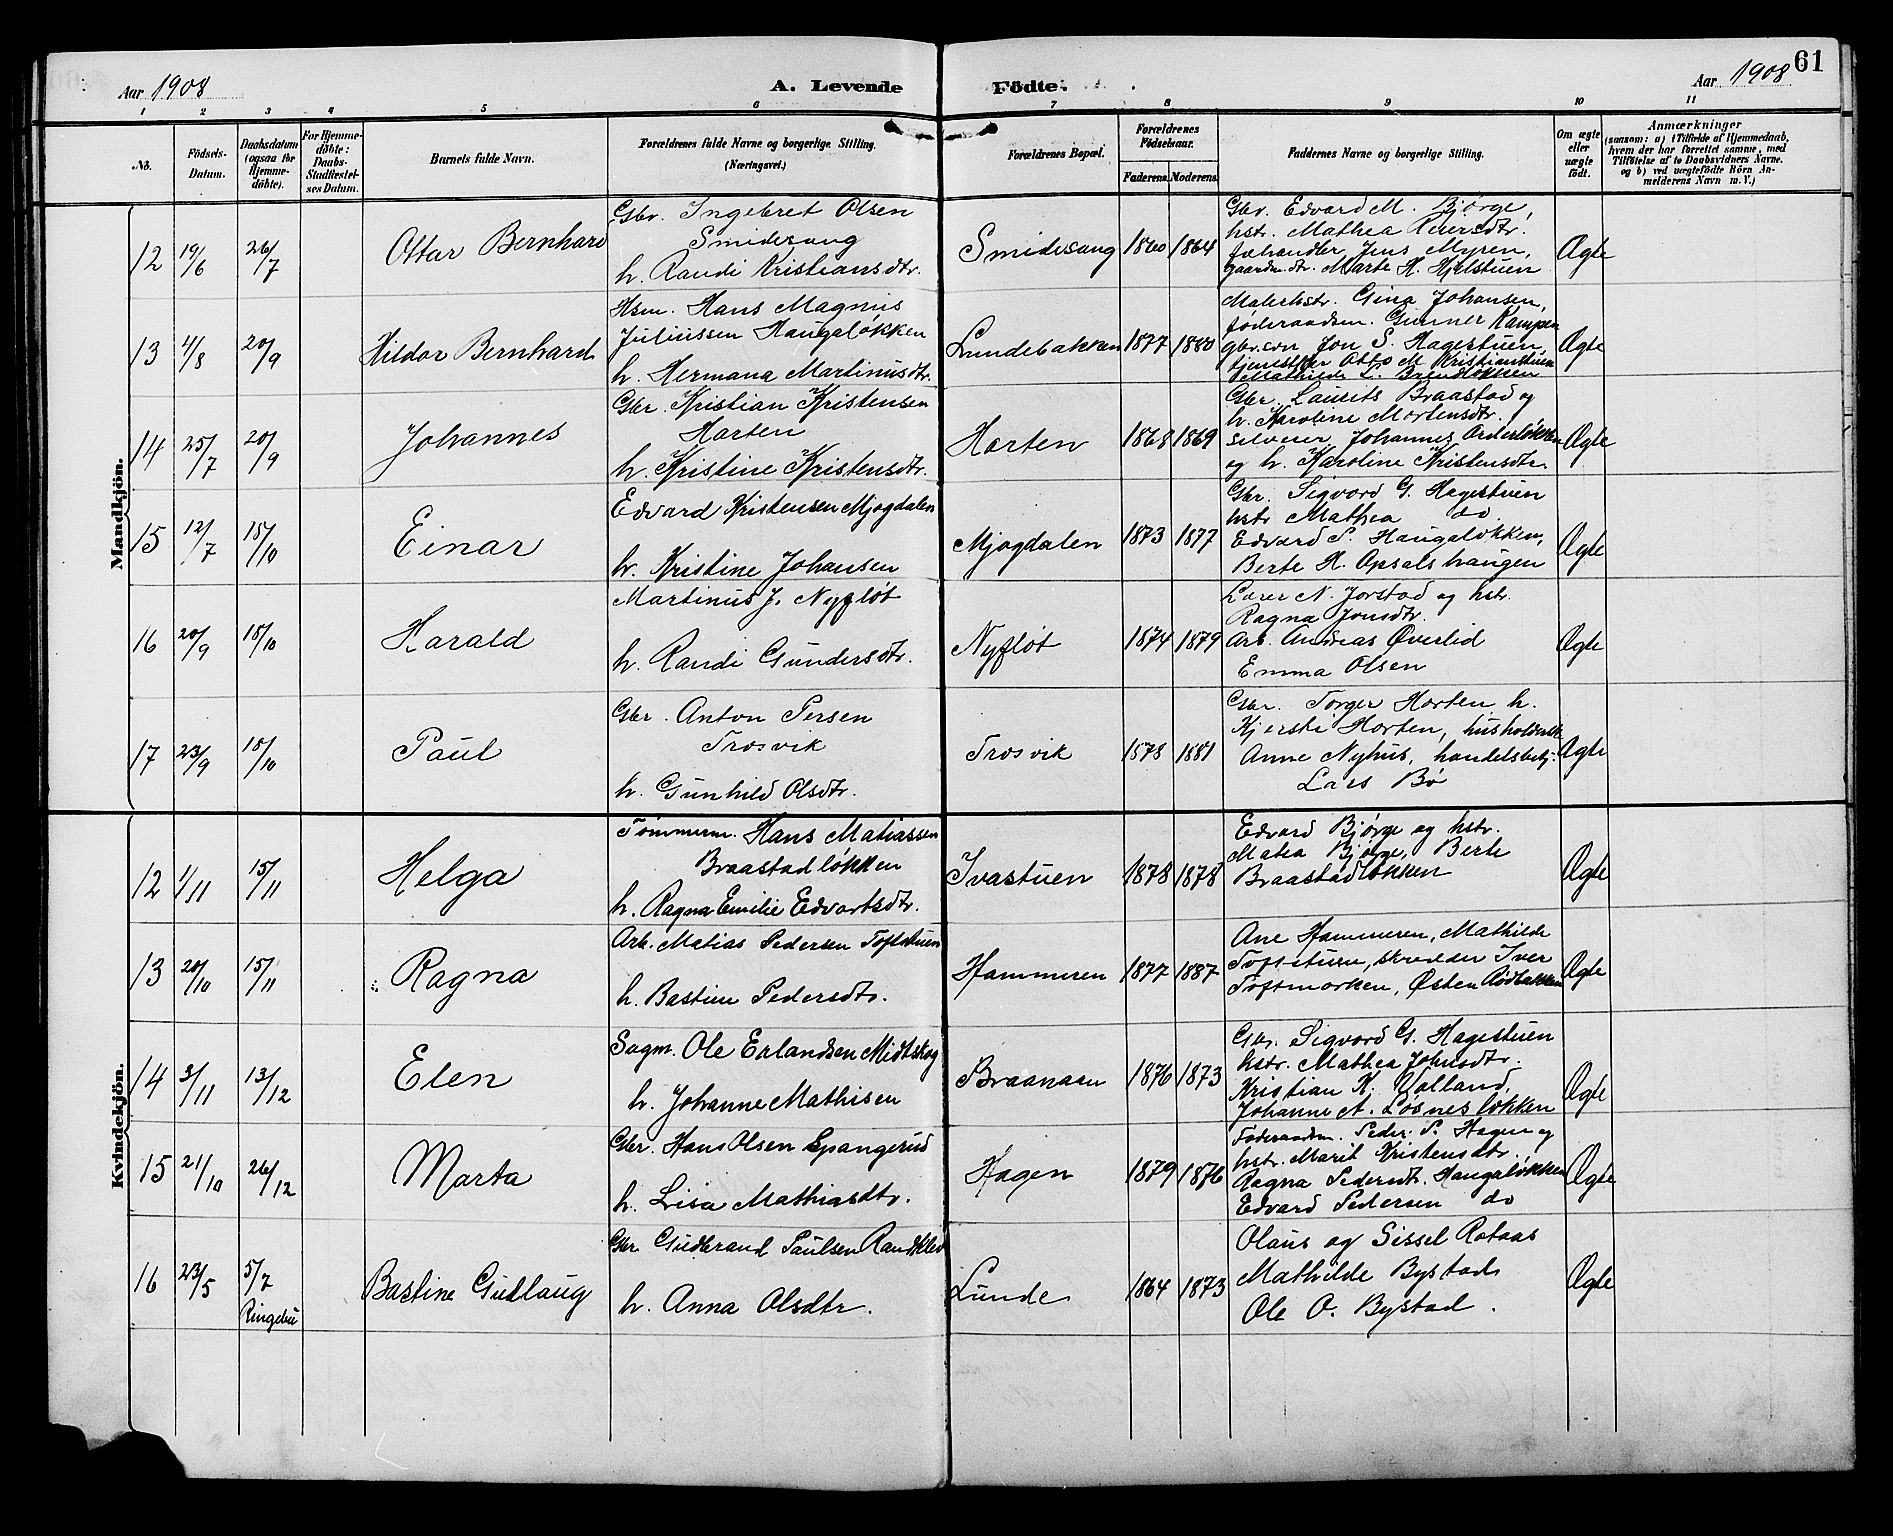 Aar 1908
A. Levende
Födte.
Aar 1908
61
1 2 3 4 5 6 7 8 9 10 11
No.
Födsels-
Datum.
Daabsdatum
(ogsaa for
Hjemme-
döbte).
For Hjemme-
döbte:
Daabs-
Stadfæstel-
ses Datum.
Barnets fulde Navn.
Forældrenes fulde Navne og borgerlige Stilling.
(Næringsvei.)
Forældrenes Bopæl.
Forældrenes
Födselsaar.
Faderens. Moderens.
Faddernes Navne og borgerlige Stilling.
Om ægte
eller
uægte
födt.
Anmærkninger
(saasom: a) i Tilfælde af Hjemmedaab,
hvem der har forrettet samme, med
Tilföielse af to Daabsvidners Navne.
og b) ved uægtefödte Börn An-
melderens Navn m. V.)
Mandkjön.
12 19/6 26/7 Ottar Bernhard
Gbr. Ingebret Olsen
Smidesang
h. Randi Kristiansdtr.
Smidesang 1860 1864
Gbr. Edvard M. Bjørge,
hstr. Mathea Reiersdtr.
fehandler Jens Myren,
gaardm.dtr. Marte H. Hjelstuen
Ægte
13 4/8 20/9 Hildor Bernhard
Hsm. Hans Magnus
Juliussen Haugaløkken
h. Hermana Martinusdtr.
Lundebakken 1877 1880
Malerhstr. Gina Johansen,
føderaadsm. Gunner Kampen
gbr.søn Jon S. Hagestuen,
Otto M. Kristianstuen
Mathilde L. Brendløkken
Ægte
14 25/7 20/9 Johannes
Gbr. Kristian Kristensen
Horten
h. Kristine Kristensdtr.
Horten 1868 1869
Gbr. Laurits Braastad og
h. Karoline Mortensdtr.
selveier Johannes Ordersløkken
og h. Karoline Kristensdtr.
Ægte
15 12/7 18/10 Einar
Edvard Kristensen Mjogdalen
h. Kristine Johansen
Mjogdalen 1873 1877
Gbr. Sigvord G. Hagestuen
hstr Mathea do
Edvard S. Haugaløkken,
Berte H. Opsalshaugen
Ægte
16 20/9 18/10 Harald
Martinus J. Nyfløt
h. Randi Gundersdtr.
Nyfløt 1874 1879
Lærer N. Jorstad og hstr.
Ragna Jonsdtr.
Arb. Andreas Øverlid
Emma Olsen
Ægte
17 23/9 18/10 Paul
Gbr. Anton Persen
Trosvik
h. Gunhild Olsdtr.
Trosvik 1878 1881
Gbr. Torger Horten, h.
Kjersti Horten, husholderske
Anne Nyhus, handelsbetj.
Lars Bø
Ægte
Kvindekjön.
12 1/11 15/11 Helga
Tømmerm. Hans Matiassen
Braastadløkken
h. Ragna Emilie Edvartsdtr.
Ivastuen 1878 1878
Edvard Bjørge og hstr.
Matea Bjørge, Berte
Braastadløkken
Ægte
13 20/10 15/11 Ragna
Arb. Matias Pedersen Toftstuen
h. Bastine Pedersdtr.
Hammeren 1877 1887
Ane Hammeren, Mathilde
Toftstuen, skrædder Iver
Toftmorken, Østen Rødbakken
Ægte
14 3/11 13/12 Elen
Sagm. Ole Erlandsen Midtskog
h. Johanne Mathisen
Braanaasen 1876 1873
Gbr. Sigvord G. Hagestuen
hstr. Mathea Johnsdtr.
Kristian K. Volland,
Johanne A. Løsnesløkken
Ægte
15 21/10 26/12 Marta
Gbr. Hans Olsen Spangerud
h. Lisa Mathiasdtr.
Hagen 1879 1876
Føderaadsm. Peder P. Hagen og
hstr. Marit Kristensdtr.
Ragna Pedersdtr. Haugaløkken
Edvard Pedersen do
Ægte
16 23/5 5/7
Ringebu
Bastine Gudlaug
Gbr. Gudbrand Paulsen Randklev
h. Anna Olsdtr.
Lunde 1864 1873
Olaus og Sissel Rotaas
Mathilde Bystad
Ole O. Bystad.
Ægte